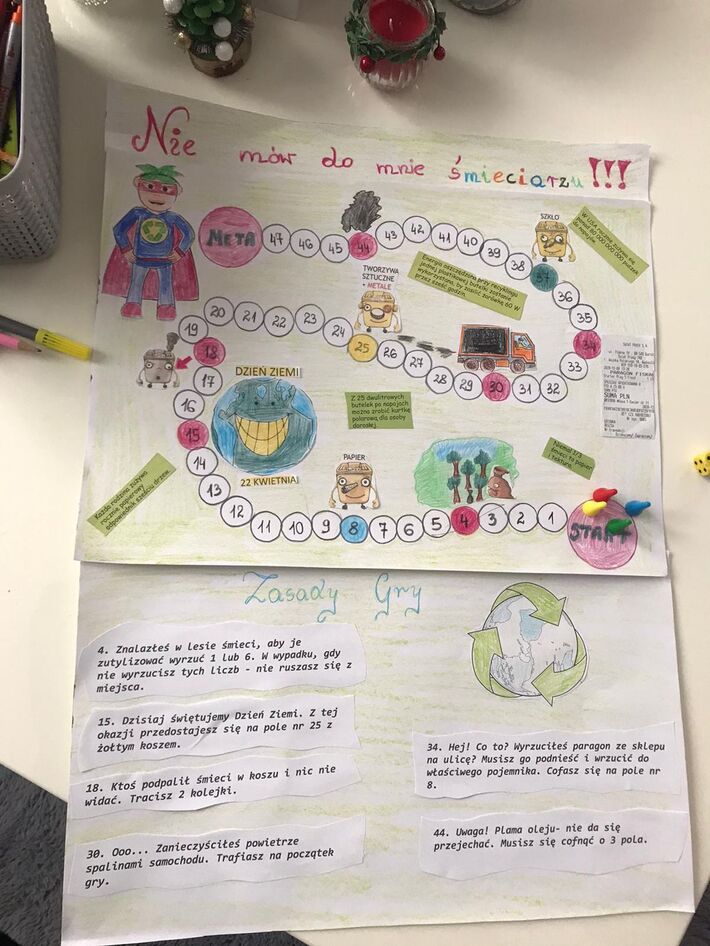 Nie mów do mnie śmieciarzu!!!
META
47
46
45
44
43
42
41
40
39
38
37
36
35
34
33
32
31
30
29
28
27
26
25
24
23
22
21
20
19
18
17
16
15
14
13
12
11
10
9
8
7
6
5
4
3
2
1
START
SZKŁO
W USA rocznie zużywa się
ponad 80 000 000 000 puszek
po napojach.
Energia oszczędzona przy recyklingu
jednej plastikowej butelki zostanie
wykorzystana, by zasilić żarówkę 60 W
przez sześć godzin.
TWORZYWA
SZTUCZNE
+ METALE
DZIEŃ ZIEMI
22 KWIETNIA
Z 25 dwulitrowych
butelek po napojach
można zrobić kurtkę
polarową dla osoby
dorosłej.
PAPIER
Niemal 1/3
śmieci to papier
i tektura.
Każda rodzina zużywa
rocznie papierowy
odpowiednik sześciu drzew.
PARAGON FISKALNY
SUMA PLN
Zasady Gry
4. Znalazłeś w lesie śmieci, aby je
zutylizować wyrzuć 1 lub 6. W wypadku, gdy
nie wyrzucisz tych liczb - nie ruszasz się z
miejsca.
15. Dzisiaj świętujemy Dzień Ziemi. Z tej
okazji przedostajesz się na pole nr 25 z
żółtym koszem.
18. Ktoś podpalił śmieci w koszu i nic nie
widać. Tracisz 2 kolejki.
30. Ooo... Zanieczyściłeś powietrze
spalinami samochodu. Trafiasz na początek
gry.
34. Hej! Co to? Wyrzuciłeś paragon ze sklepu
na ulicę? Musisz go podnieść i wrzucić do
właściwego pojemnika. Cofasz się na pole nr
8.
44. Uwaga! Plama oleju- nie da się
przejechać. Musisz się cofnąć o 3 pola.